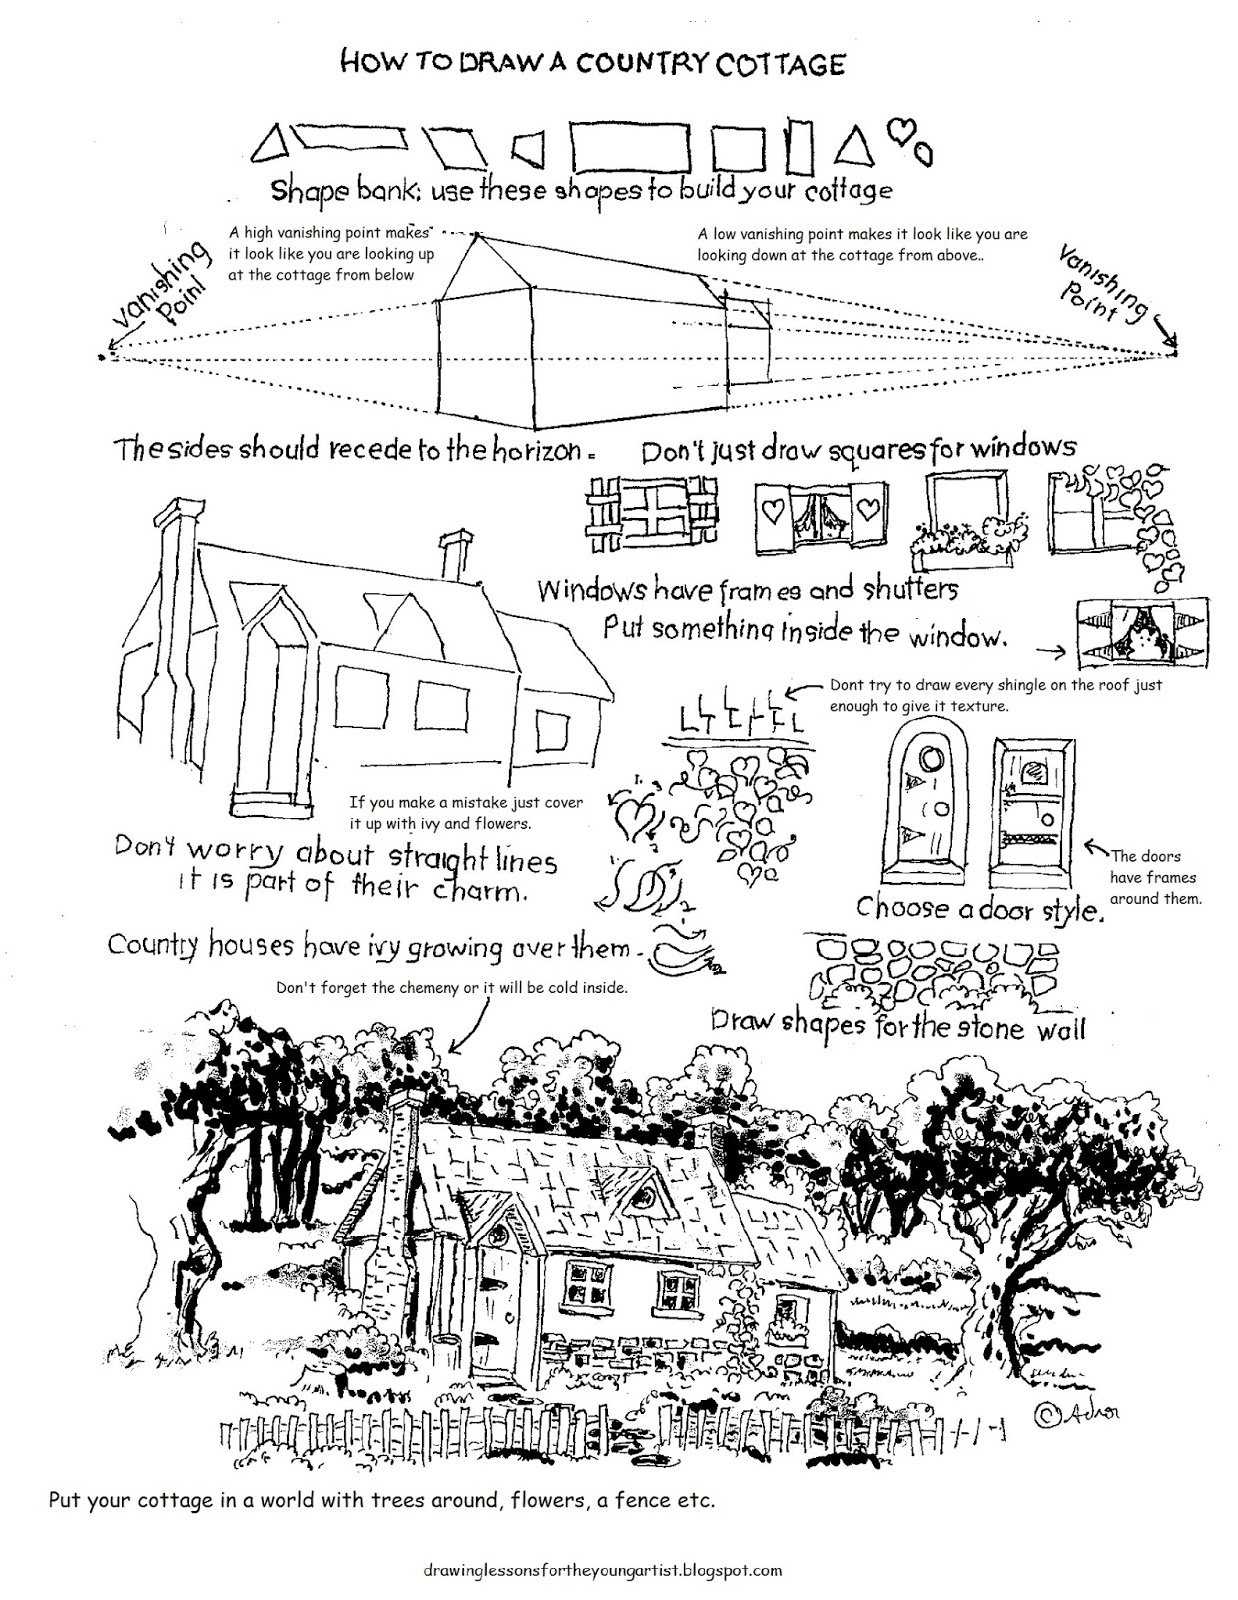 HOW TO DRAW A COUNTRY COTTAGE
Shape bank: use these shapes to build your cottage
A high vanishing point makes
it look like you are looking up
at the cottage from below
A low vanishing point makes it look like you are
looking down at the cottage from above..
Vanishing
Point
Vanishing
Point
The sides should recede to the horizon.
Don't just draw squares for windows
Windows have frames and shutters
Put something inside the window.
Dont try to draw every shingle on the roof just
enough to give it texture.
If you make a mistake just cover
it up with ivy and flowers.
Don't worry about straight lines
it is part of their charm.
The doors
have frames
around them.
Choose a door style.
Country houses have ivy growing over them.
Don't forget the chemeny or it will be cold inside.
Draw shapes for the stone wall
©
Put your cottage in a world with trees around, flowers, a fence etc.
drawinglessonsfortheyoungartist.blogspot.com